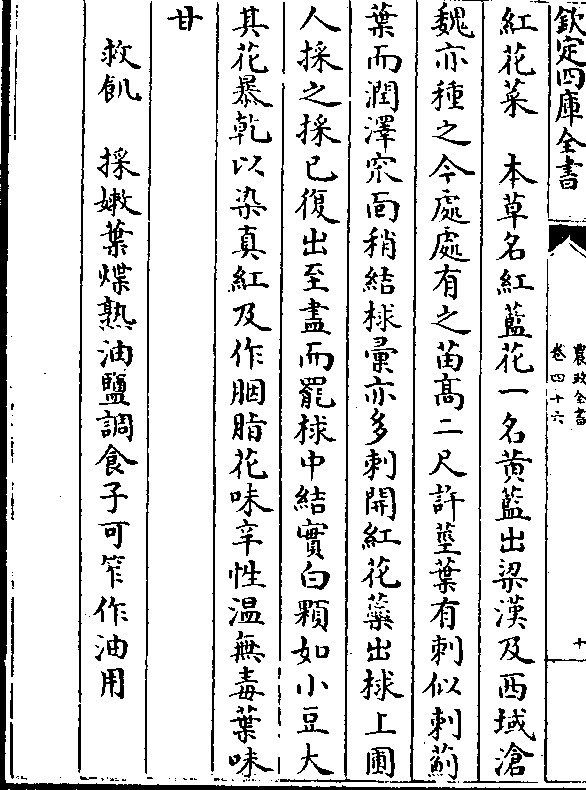 欽定四庫全書
農政全書
卷四十六
十
紅花菜　本草名紅藍花一名黄藍出梁漢及西域滄
魏亦種之今處處有之苗髙二尺許莖葉有刺似刺薊
葉而潤澤窊面稍結梂彚亦多刺開紅花蘂出梂上圃
人採之採已復出至盡而罷梂中結實白顆如小豆大
其花暴乾以染真紅及作胭脂花味辛性温無毒葉味
甘
救飢　採嫩葉煠熟油鹽調食子可笮作油用